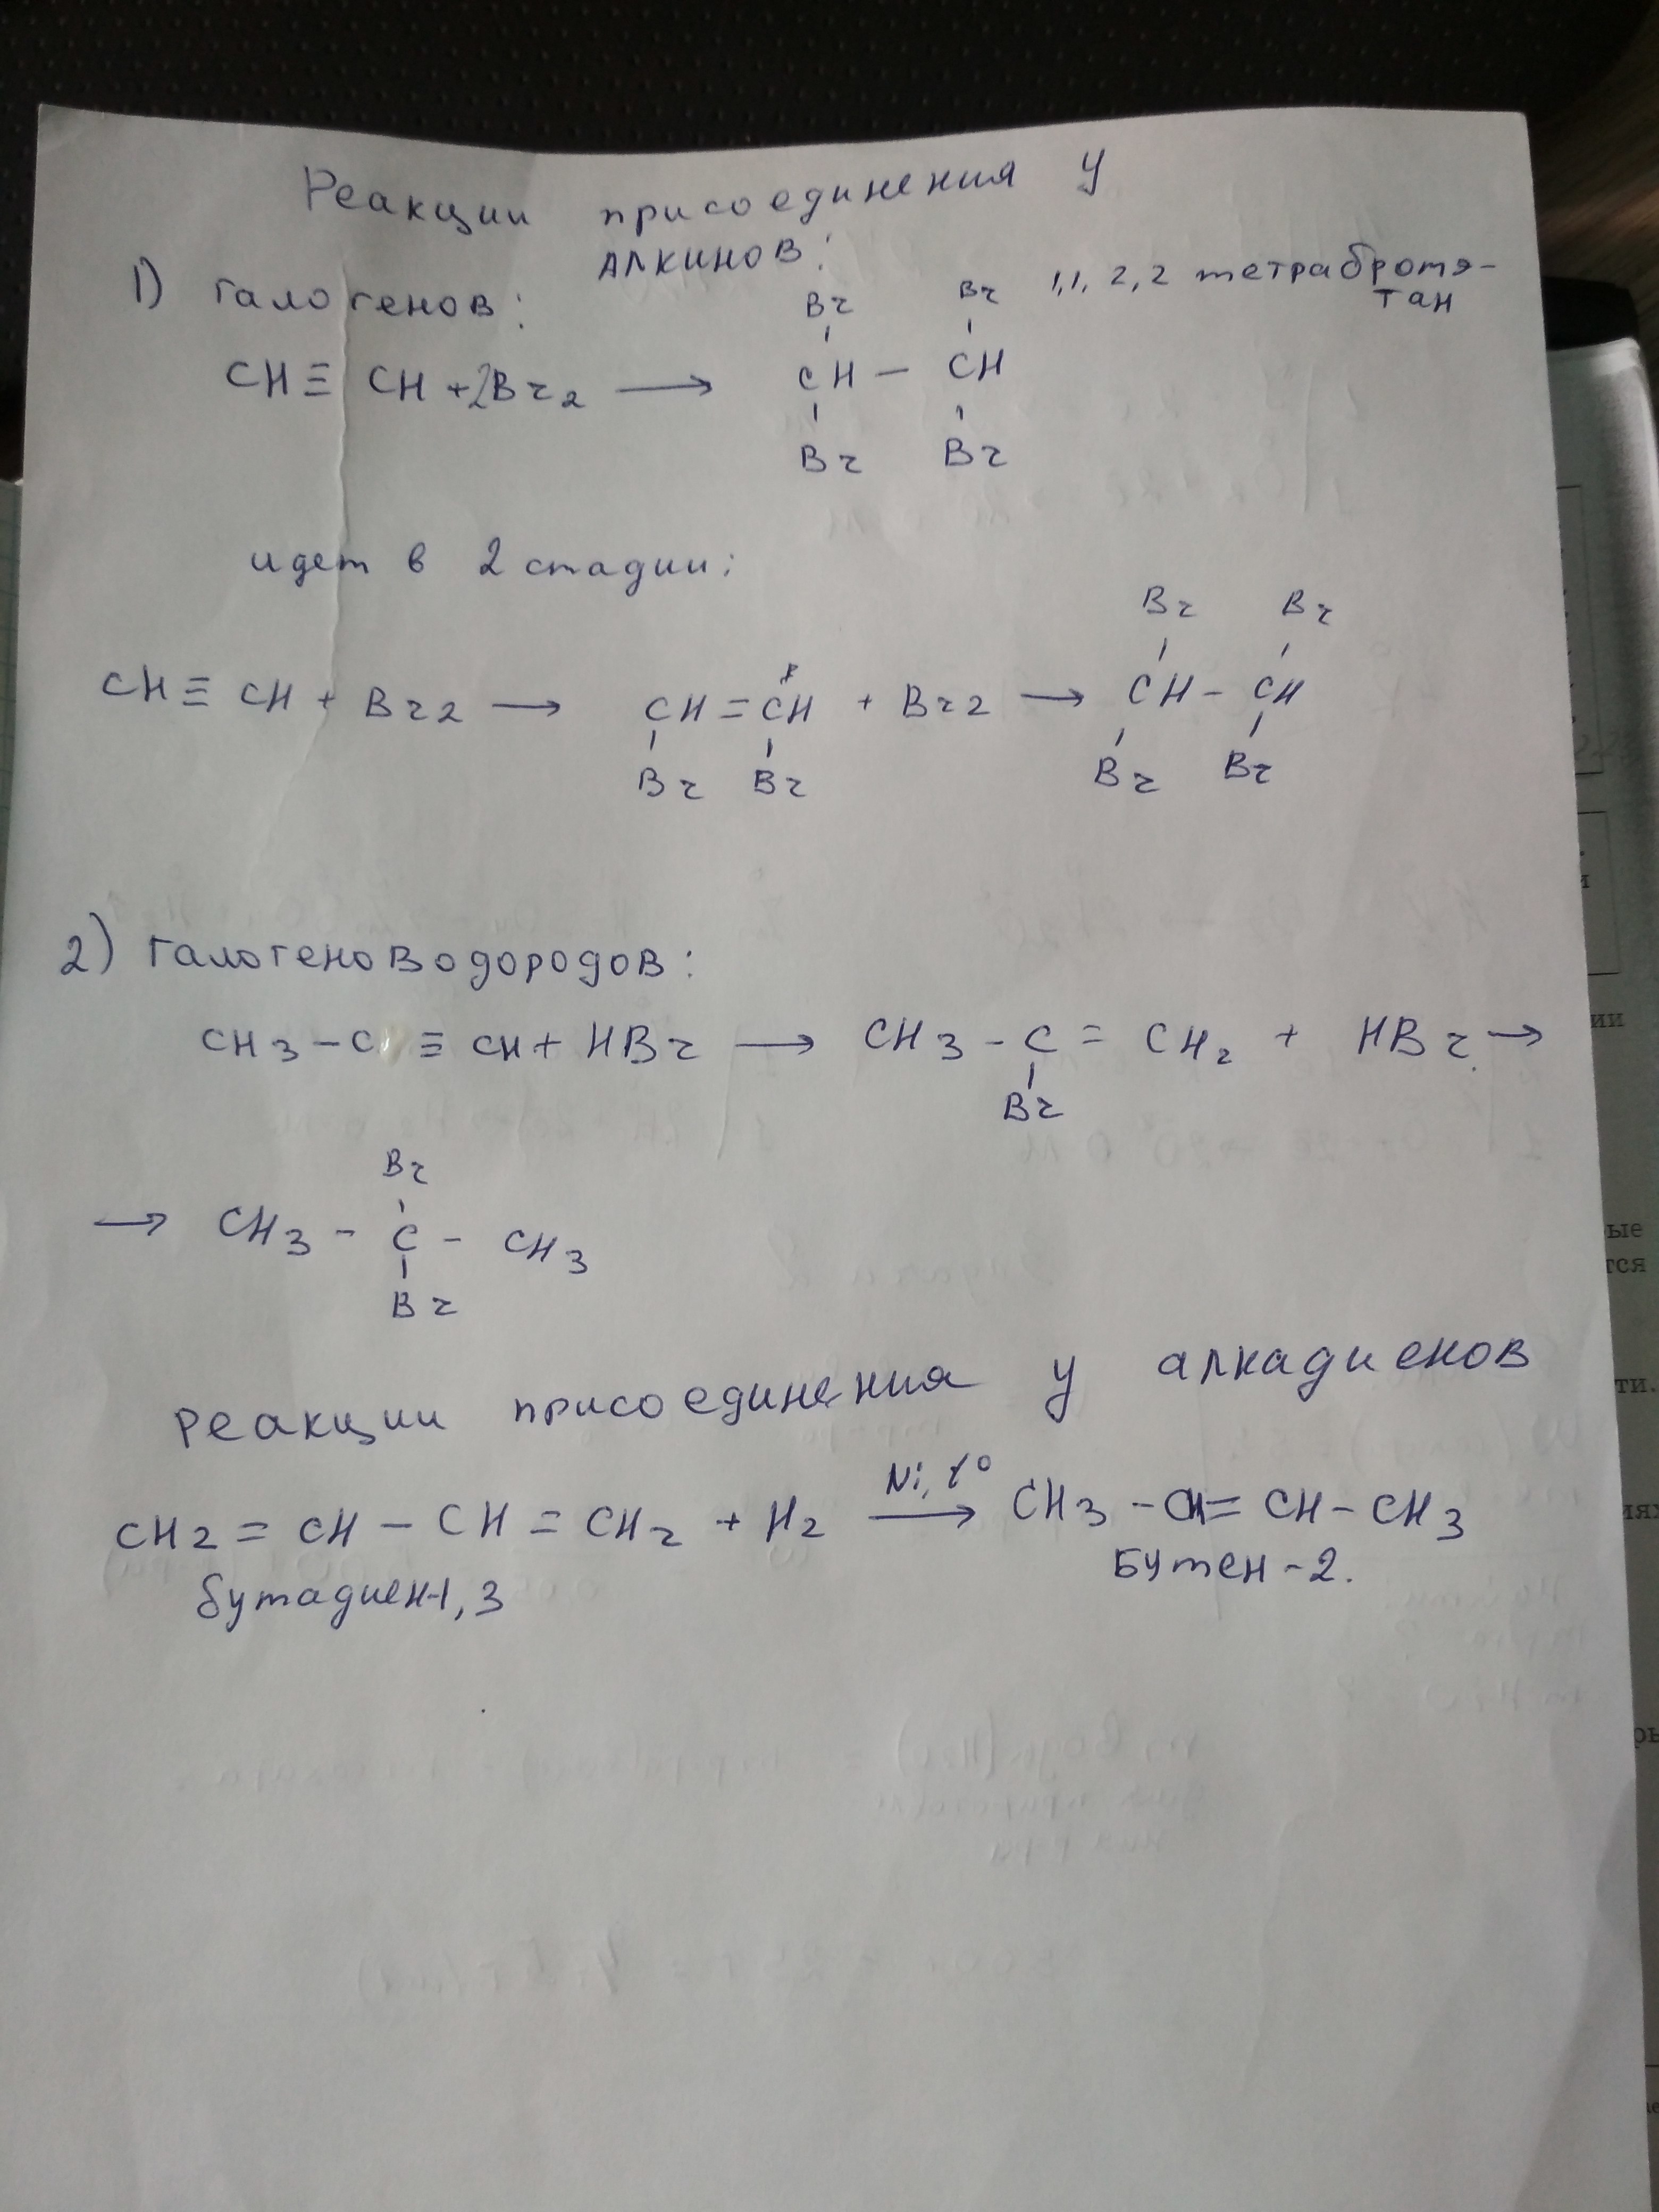 Реакции присоединения у
алкинов:
1) галогенов:
1,1, 2, 2 тетрабромэ-
тан
Br Br
CH ≡ CH + 2Br2 → CH — CH
Br Br
идет в 2 стадии:
Br Br
CH ≡ CH + Br2 → CH = CH + Br2 → CH - CH
Br Br Br Br
2) галогеноводородов:
CH3 - C ≡ CH + HBr → CH3 - C = CH2 + HBr →
Br
Br
→ CH3 - C - CH3
Br
реакции присоединения у алкадиенов
Ni, t°
CH2 = CH - CH = CH2 + H2 → CH3 - CH = CH - CH3
бутадиен-1,3 Бутен - 2.